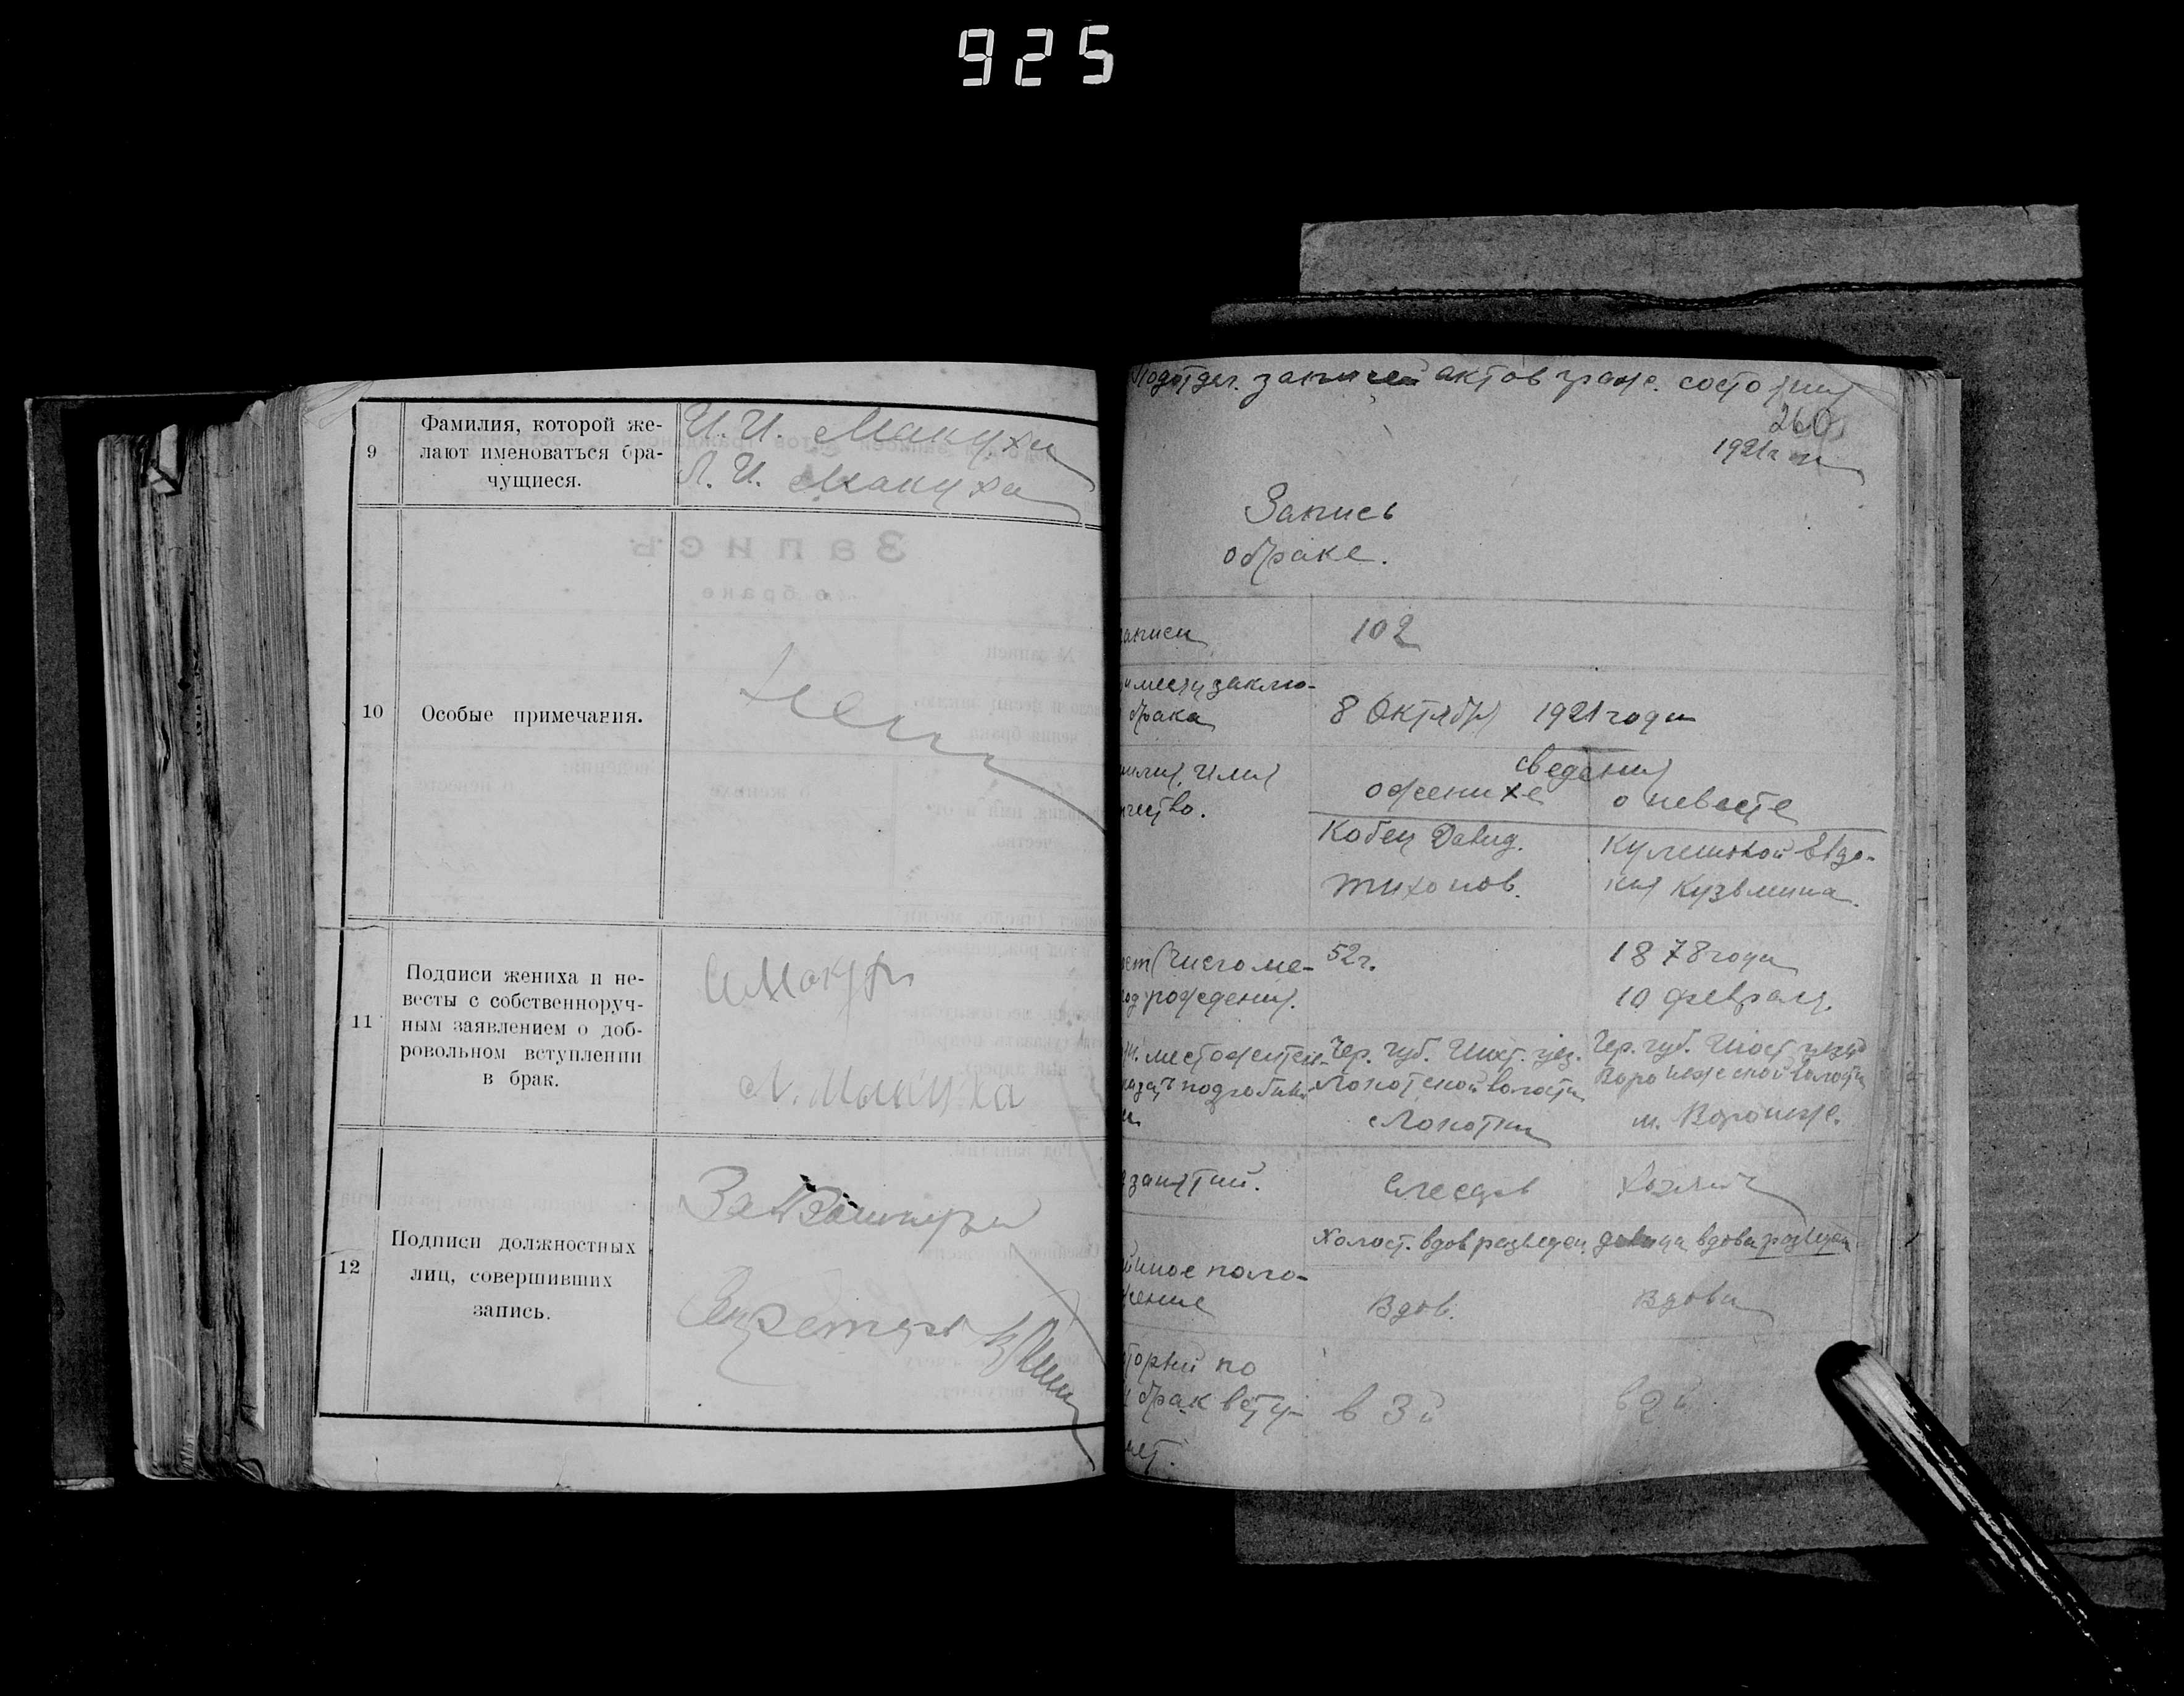 925
9
Фамилия, которой же-
лают именоваться бра-
чущиеся.
И. И. Макуха
Л. И. Макуха
10
Особые примечания.
11
Подписи жениха и не-
весты с собственноруч-
ным заявлением о доб-
ровольном вступлении
в брак.
Л. Макуха
12
Подписи должностных
лиц, совершивших
запись.
Секретарь
Подотдел. записей актов граж. состояния
260
1921 г.
Запись
о браке.
записи
102
и месту заклю-
брака
8 Октября 1921 года
сведения
имя
о женихе
о невесте
чество.
Кобец Давид.
Тихонов.
Кулешовой Евдо-
кия Кузьмина.
(число ме-
од рождения.
52 г.
1878 года
10 февраля.
местожител-
подробный
Чер. губ. Шост. уез.
Локотской волости
с Локотки
Чер. губ. Шост уезд
Воронежской волости
м. Воронеж.
занятий.
Слесарь
Холост. вдов разведен
девица вдова разведена
йное поло-
жение
Вдов.
Вдова
торый по
брак всту-
ает.
в 3 й
в 2 й